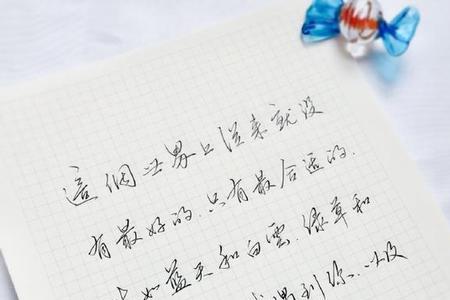 這個世界上從来就没
有最好的.只有最合适的.
如蓝天和白雲.绿草和
遇到你..以及